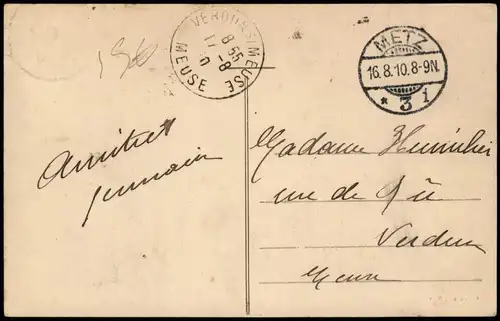 156
VERDUN S/MEUSE
8 55
17 -8
10
MEUSE
METZ
16.8.10.8-9N.
* 3 i
Amitiés
Germain
Madame
rue de Rû
Verdun
Meuse